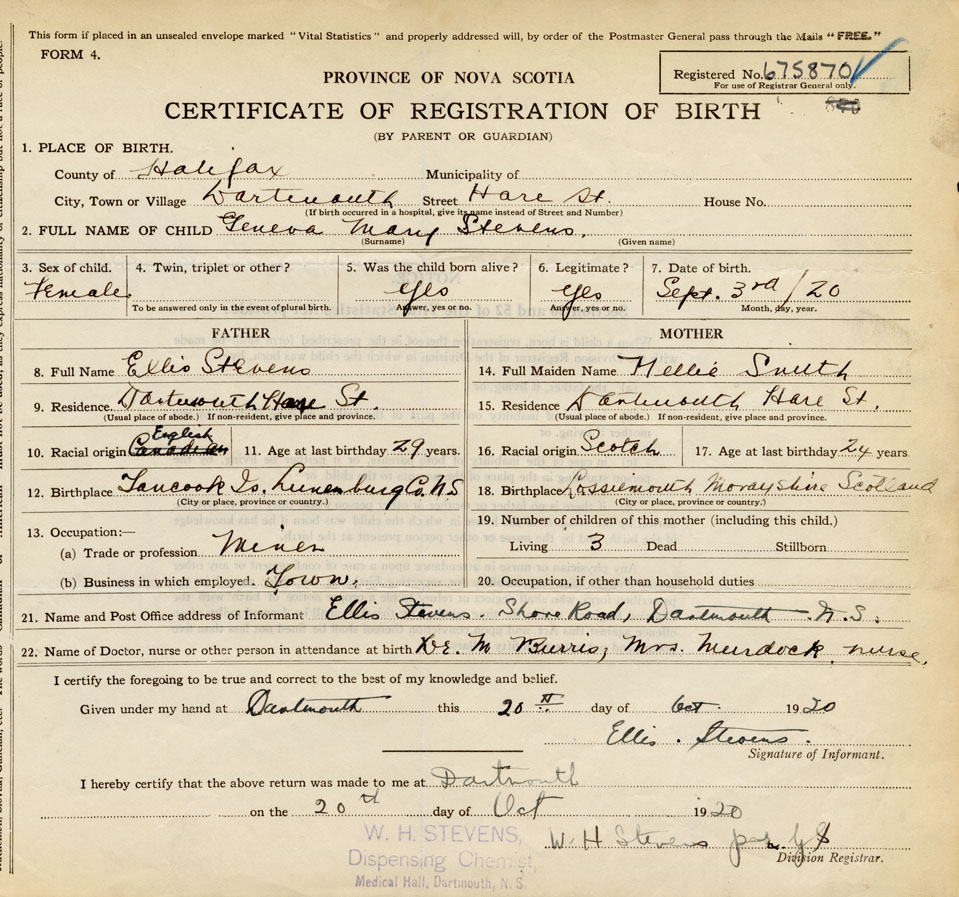 This form if placed in an unsealed envelope marked "Vital Statistics" and properly addressed will, by order of the Postmaster General pass through the Mails "FREE."
FORM 4.
Registered No. 675870
For use of Registrar General only.
PROVINCE OF NOVA SCOTIA
CERTIFICATE OF REGISTRATION OF BIRTH
(BY PARENT OR GUARDIAN)
1. PLACE OF BIRTH.
County of Halifax Municipality of
City, Town or Village Dartmouth Street Hare St. House No.
(If birth occurred in a hospital, give its name instead of Street and Number)
2. FULL NAME OF CHILD Geneva Mary Stevens.
(Surname) (Given name)
3. Sex of child. 4. Twin, triplet or other? 5. Was the child born alive? 6. Legitimate? 7. Date of birth.
Female. Yes Yes Sept. 3rd/20
To be answered only in the event of plural birth. Answer, yes or no. Answer, yes or no. Month, day, year.
FATHER
8. Full Name Ellis Stevens
9. Residence. Dartmouth Hare St.
(Usual place of abode.) If non-resident, give place and province.
English
10. Racial origin Canadian 11. Age at last birthday 29 years.
12. Birthplace Tancook Is. Lunenburg Co. N S
(City or place, province or country.)
13. Occupation:—
(a) Trade or profession Miner
(b) Business in which employed. Town.
MOTHER
14. Full Maiden Name Nellie Smith
15. Residence Dartmouth Hare St.
(Usual place of abode.) If non-resident, give place and province.
16. Racial origin Scotch 17. Age at last birthday 24 years.
18. Birthplace Lossiemouth Morayshire Scotland
(City or place, province or country.)
19. Number of children of this mother (including this child.)
Living 3 Dead Stillborn
20. Occupation, if other than household duties
21. Name and Post Office address of Informant Ellis Stevens. Shore Road, Dartmouth N.S.
22. Name of Doctor, nurse or other person in attendance at birth Dr. M Burris; Mrs. Murdock, nurse,
I certify the foregoing to be true and correct to the best of my knowledge and belief.
Given under my hand at Dartmouth this 20th day of Oct 1920
Ellis. Stevens.
Signature of Informant.
I hereby certify that the above return was made to me at Dartmouth
on the 20th day of Oct 1920
W. H. STEVENS,
Dispensing Chemist,
Medical Hall, Dartmouth, N. S.
W. H Stevens per
Division Registrar.